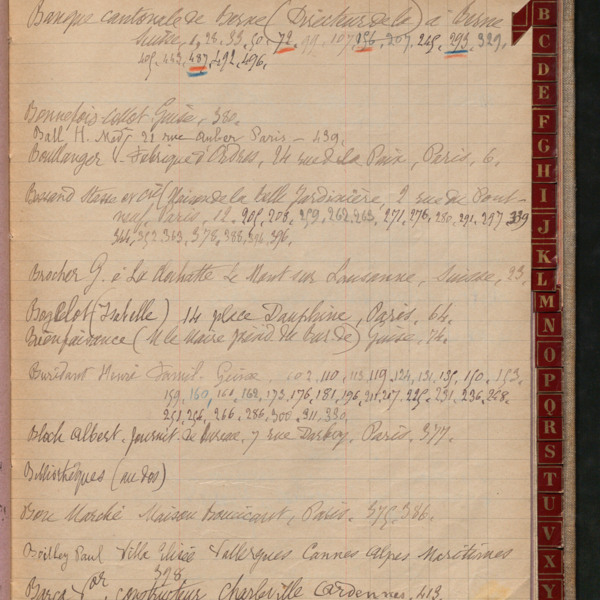 Banque cantonale de Berne (Directeur de la) à Berne
Suisse, 1, 28, 33, 50, 72, 99, 107, 156, 207, 245, 293, 329,
405, 443, 487, 492, 496,
Bonnefois Collot Guise, 380.
Ball H. Medn 21 rue Auber Paris - 439.
Boullanger V. Fabrique d'Ordres, 24 rue de la Paix, Paris, 6.
Bessand (Maison de la Belle Jardinière, 2 rue du Pont-
neuf, Paris, 12, 205, 208, 259, 262, 263, 271, 276, 280, 291, 297, 339
344, 352, 363, 378, 388, 396.
Brocher G. à La Rochette Le Mont sur Lausanne, Suisse, 23.
(Isabelle) 14 place Dauphine, Paris, 64.
Bienfaisance (M le Maire présid. du bur. de) Guise, 74.
Henri Guise, 102, 110, 113, 119, 124, 131, 135, 150, 153,
159, 160, 161, 162, 173, 176, 181, 196, 211, 217, 225, 231, 236, 268,
251, 256, 266, 286, 300, 311, 330,
Bloch Albert, 7 rue Darboy, Paris, 377.
Bibliothèques (au dos)
Bon Marché Maison Boucicaut, Paris. 375, 386.
Paul Villa Elisée Vallergues Cannes Alpes Maritimes
328
constructeur Charleville Ardennes, 413
B
C
D
E
F
G
H
I
J
K
L
M
N
O
P
Q
R
S
T
U
V
X
Y